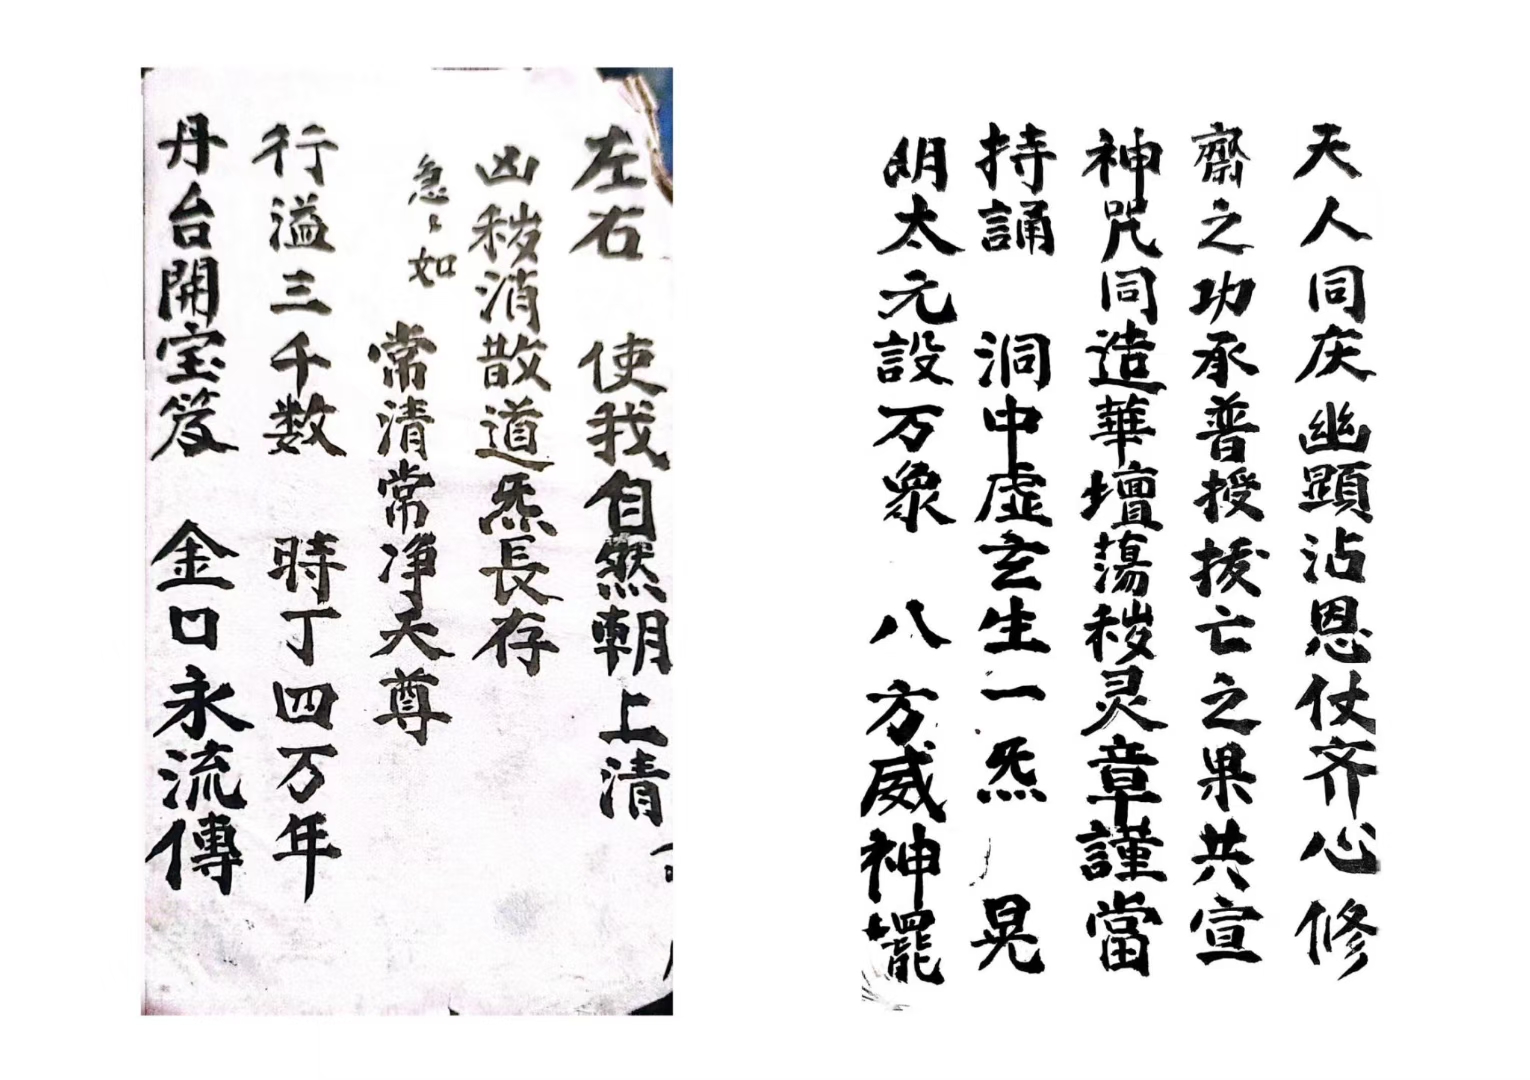 天人同庆幽顕沾恩仗齐心修
齋之功承普授拔亡之果共宣
神咒同造華壇蕩秽灵章謹當
持誦　洞中虚玄生一炁　晃
明太元設万象　八方威神擺
左右　使我自然朝上清
凶秽消散道炁長存
急〻如
常清常净天尊
行溢三千数　時丁四万年
丹台開宝笈　金口永流傳